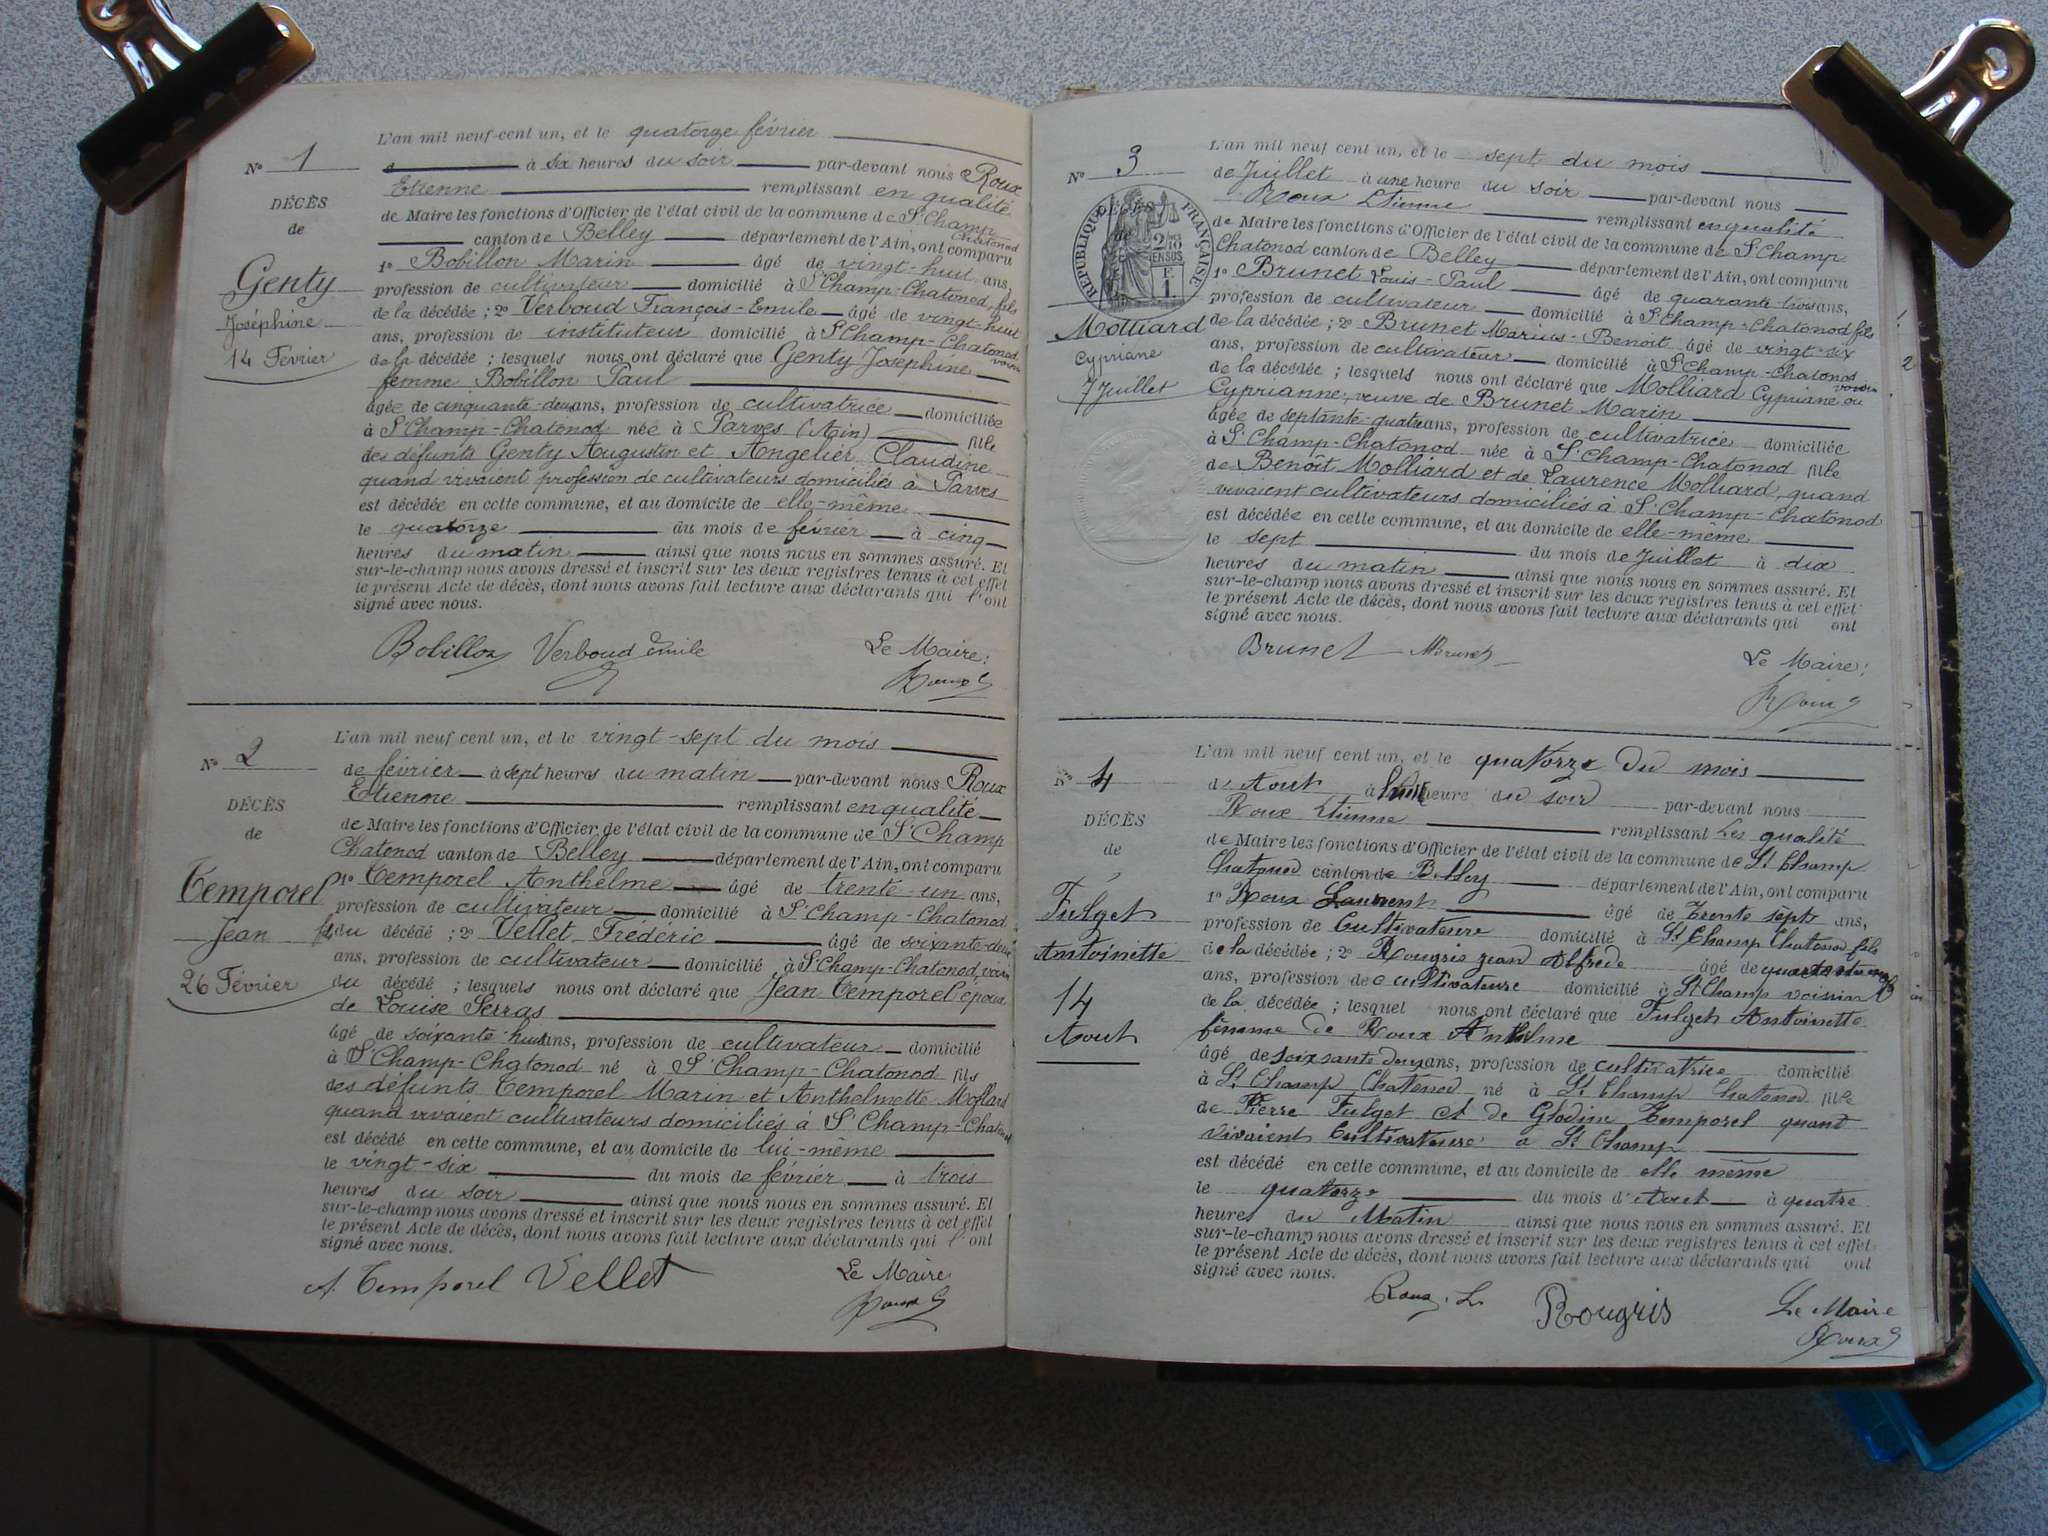 N° 1
DÉCÈS
de
Genty
Joséphine
14 Février
L'an mil neuf cent un, et le quatorze février
à six heures du soir par-devant nous Roux
Etienne remplissant en qualité
de Maire les fonctions d'Officier de l'état civil de la commune de St Champ
Chatonod
canton de Belley département de l'Ain, ont comparu
1° Bobillon Marin âgé de vingt-huit ans,
profession de cultivateur domicilié à St Champ-Chatonod, fils
de la décédée ; 2° Verboud François-Emile âgé de vingt-huit
ans, profession de instituteur domicilié à St Champ-Chatonod
voisin
de la décédée ; lesquels nous ont déclaré que Genty Joséphine
femme Bobillon Paul
âgée de cinquante-deux ans, profession de cultivatrice domiciliée
à St Champ-Chatonod née à Parves (Ain) fille
des défunts Genty Augustin et Angelier Claudine
quand vivaient profession de cultivateurs domiciliés à Parves
est décédée en cette commune, et au domicile de elle-même
le quatorze du mois de février à cinq
heures du matin ainsi que nous nous en sommes assuré. Et
sur-le-champ nous avons dressé et inscrit sur les deux registres tenus à cet effet
le présent Acte de décès, dont nous avons fait lecture aux déclarants qui l'ont
signé avec nous.
Bobillon Verboud Emile Le Maire:
Roux E
N° 2
DÉCÈS
de
Temporel
Jean
26 Février
L'an mil neuf cent un, et le vingt-sept du mois
de février à sept heures du matin par-devant nous Roux
Etienne remplissant en qualité
de Maire les fonctions d'Officier de l'état civil de la commune de St Champ
Chatonod canton de Belley département de l'Ain, ont comparu
1° Temporel Anthelme âgé de trente-un ans,
profession de cultivateur domicilié à St Champ-Chatonod
fils du décédé ; 2° Vellet Frédéric âgé de soixante-deux
ans, profession de cultivateur domicilié à St Champ-Chatonod, voisin
du décédé ; lesquels nous ont déclaré que Jean Temporel époux
de Louise Serras
âgé de soixante huit ans, profession de cultivateur domicilié
à St Champ-Chatonod né à St Champ-Chatonod fils
des défunts Temporel Marin et Anthelmette
quand vivaient cultivateurs domiciliés à St Champ-Chatonod
est décédé en cette commune, et au domicile de lui-même
le vingt-six du mois de février à trois
heures du soir ainsi que nous nous en sommes assuré. Et
sur-le-champ nous avons dressé et inscrit sur les deux registres tenus à cet effet
le présent Acte de décès, dont nous avons fait lecture aux déclarants qui l'ont
signé avec nous.
A. Temporel Vellet Le Maire
Roux E
N° 3
DÉCÈS
de
RÉPUBLIQUE FRANÇAISE
Molliard
Cypriane
7 Juillet
L'an mil neuf cent un, et le sept du mois
de Juillet à une heure du soir par-devant nous
Roux Etienne remplissant en qualité
de Maire les fonctions d'Officier de l'état civil de la commune de St Champ
Chatonod canton de Belley département de l'Ain, ont comparu
1° Brunet Louis-Paul âgé de quarante-trois ans,
profession de cultivateur domicilié à St Champ-Chatonod fils
de la décédée ; 2° Brunet Marius-Benoit âgé de vingt-six
ans, profession de cultivateur domicilié à St Champ-Chatonod
voisin
de la décédée ; lesquels nous ont déclaré que Molliard Cypriane ou
Cyprianne, veuve de Brunet Marin
âgée de septante-quatre ans, profession de cultivatrice domiciliée
à St Champ-Chatonod née à St Champ-Chatonod fille
de Benoît Molliard et de Laurence Molliard, quand
vivaient cultivateurs domiciliés à St Champ-Chatonod
est décédée en cette commune, et au domicile de elle-même
le sept du mois de Juillet à dix
heures du matin ainsi que nous nous en sommes assuré. Et
sur-le-champ nous avons dressé et inscrit sur les deux registres tenus à cet effet
le présent Acte de décès, dont nous avons fait lecture aux déclarants qui ont
signé avec nous.
Brunet MBrunet Le Maire:
Roux E
N° 4
DÉCÈS
de
Fulget
Antoinette
14
Aout
L'an mil neuf cent un, et le quatorze du mois
d'Aout à heure du soir par-devant nous
Roux Etienne remplissant les qualité
de Maire les fonctions d'Officier de l'état civil de la commune de St Champ
Chatonod canton de Belley département de l'Ain, ont comparu
1° Roux Laurent âgé de trente sept ans,
profession de Cultivateure domicilié à St Champ Chatonod fils
de la décédée ; 2° Rougris jean Alfrede âgé de
ans, profession de cultivateure domicilié à St Champ voisin
de la décédée ; lesquel nous ont déclaré que Fulget Antoinette
femme de Roux Anthelme
âgé de soixsante deux ans, profession de cultivatrice domicilié
à St Champ Chatonod né à St Champ Chatonod fille
de Pierre Fulget et de Glodine Temporel quant
vivaient Cultivateure a St Champ
est décédé en cette commune, et au domicile de elle même
le quatorze du mois d'Aout à quatre
heures du Matin ainsi que nous nous en sommes assuré. Et
sur-le-champ nous avons dressé et inscrit sur les deux registres tenus à cet effet
le présent Acte de décès, dont nous avons fait lecture aux déclarants qui ont
signé avec nous.
Roux. L. Rougris Le Maire
Roux E